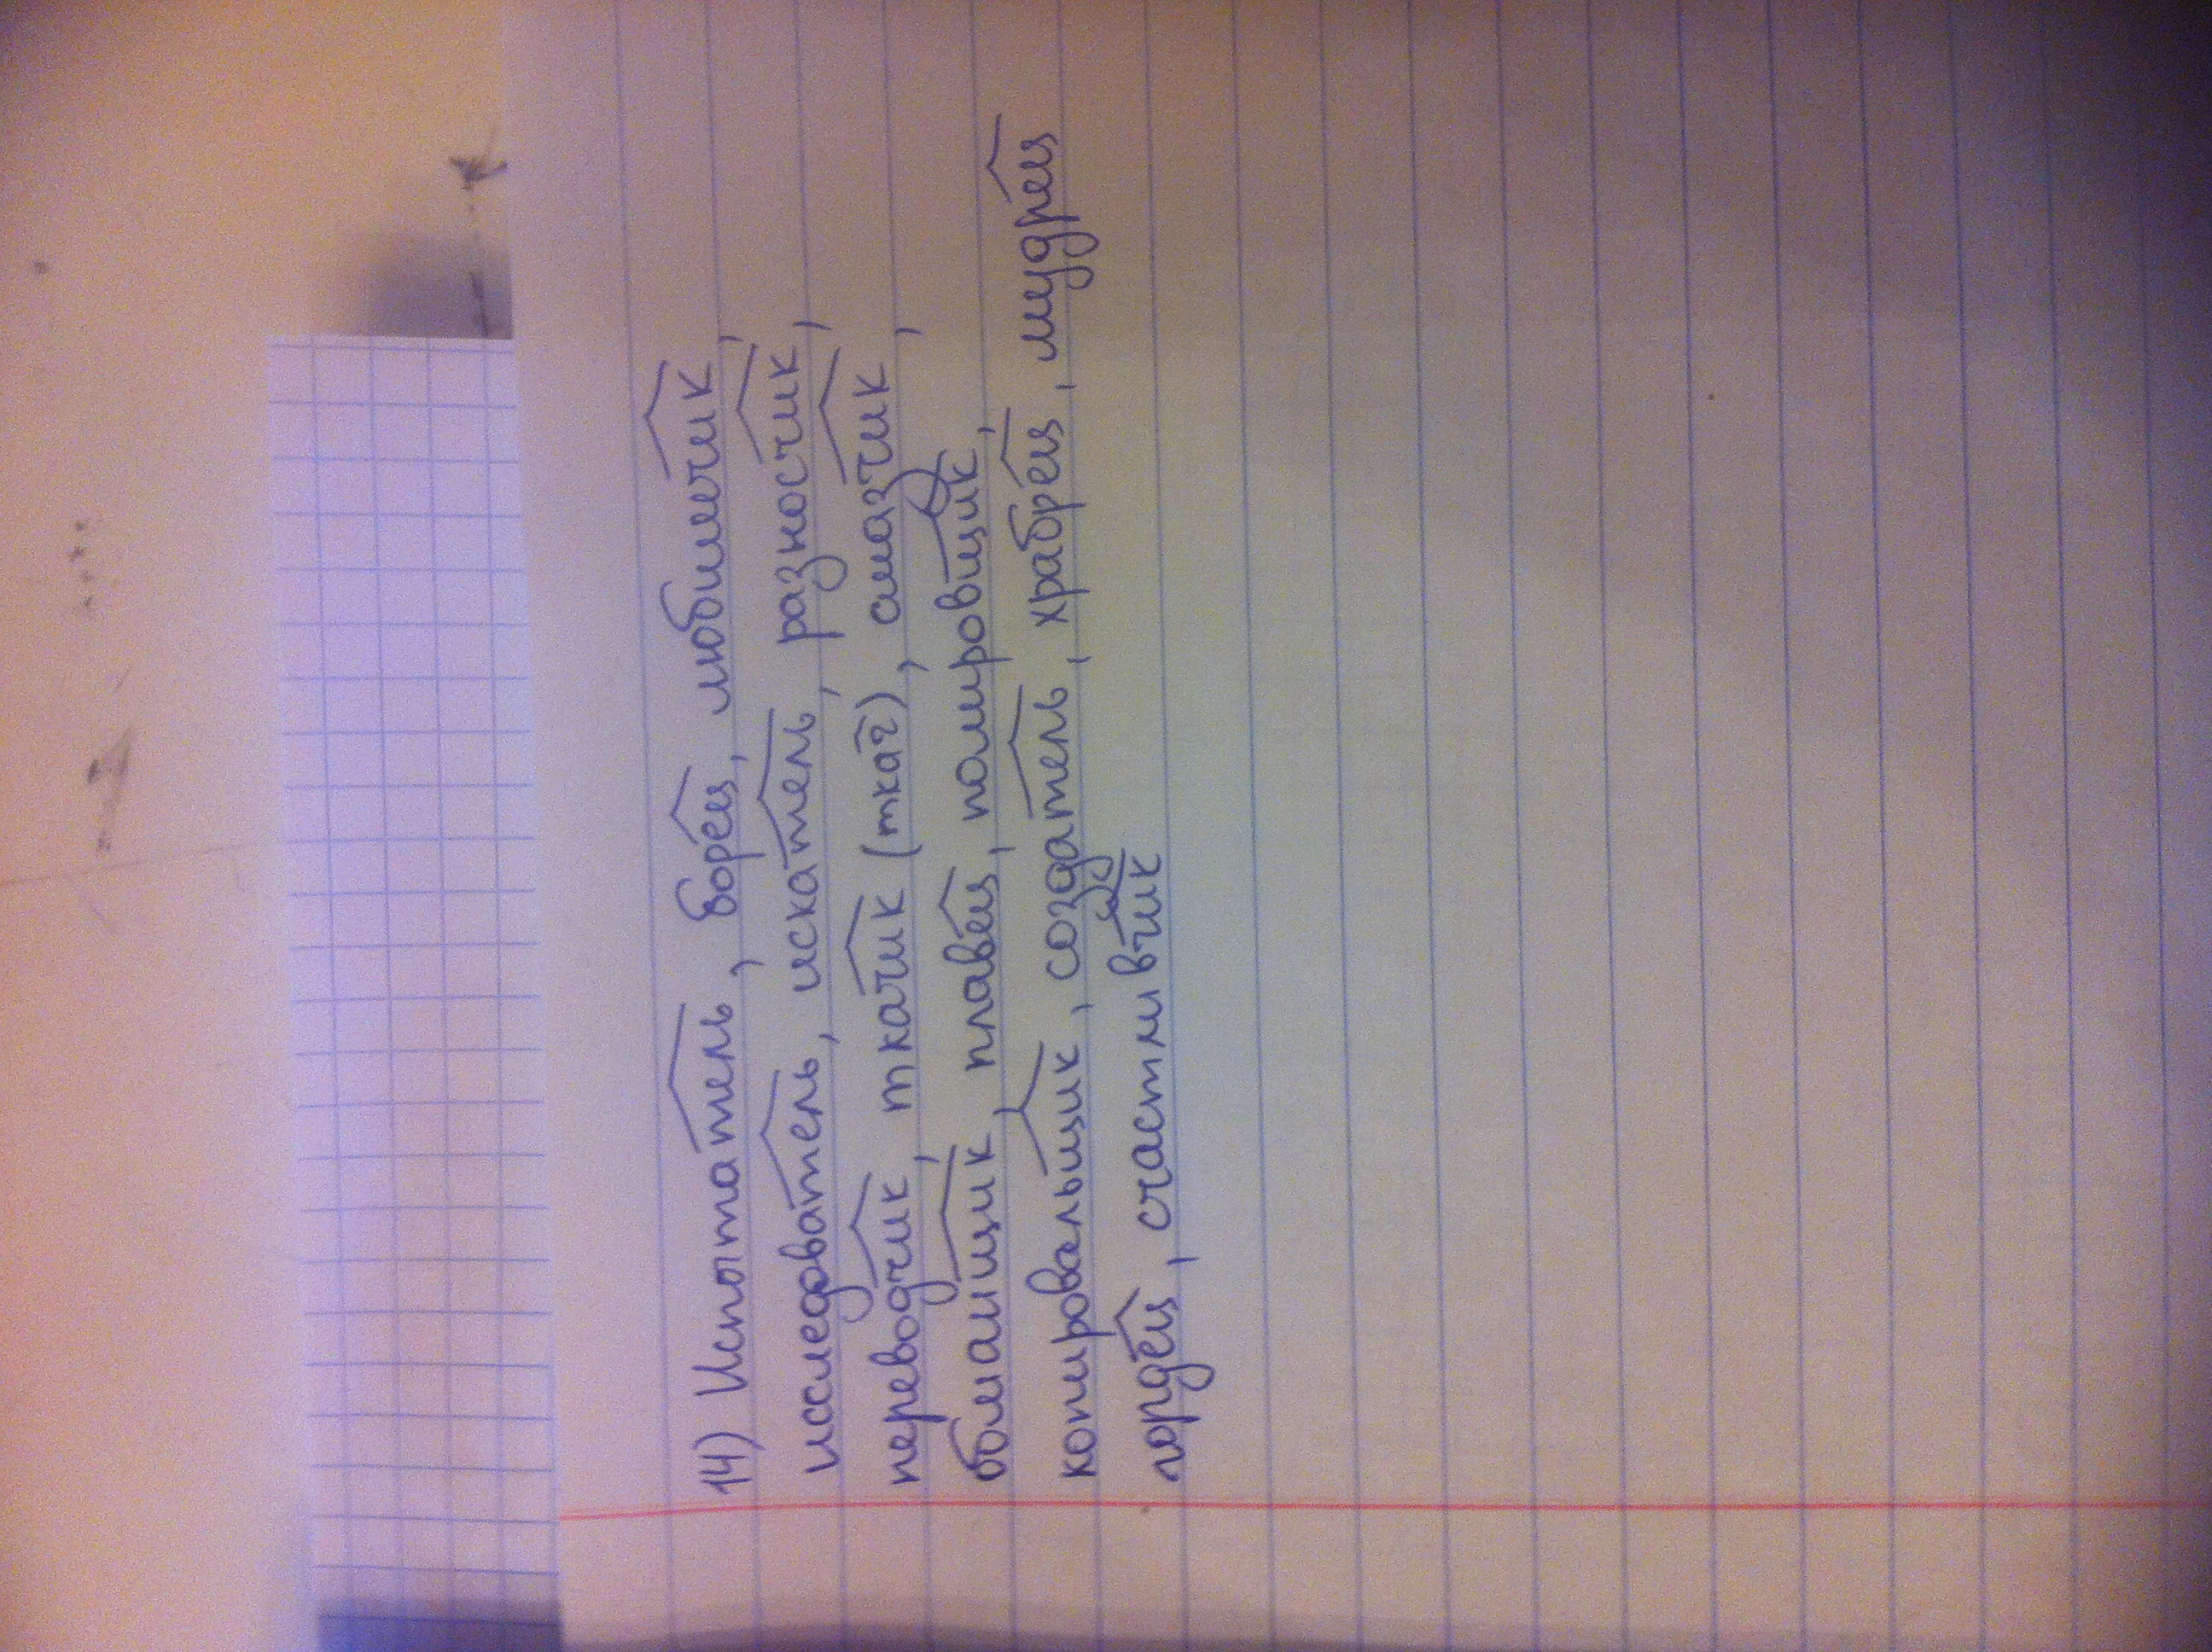 14) Испытатель, борец, любимчик,
исследователь, искатель, разносчик,
переводчик, ткачик (ткач), смазчик,
болтанщик, плавец, полировщик,
копировальщик, создатель, храбрец, мудрец
гордец, счастливчик